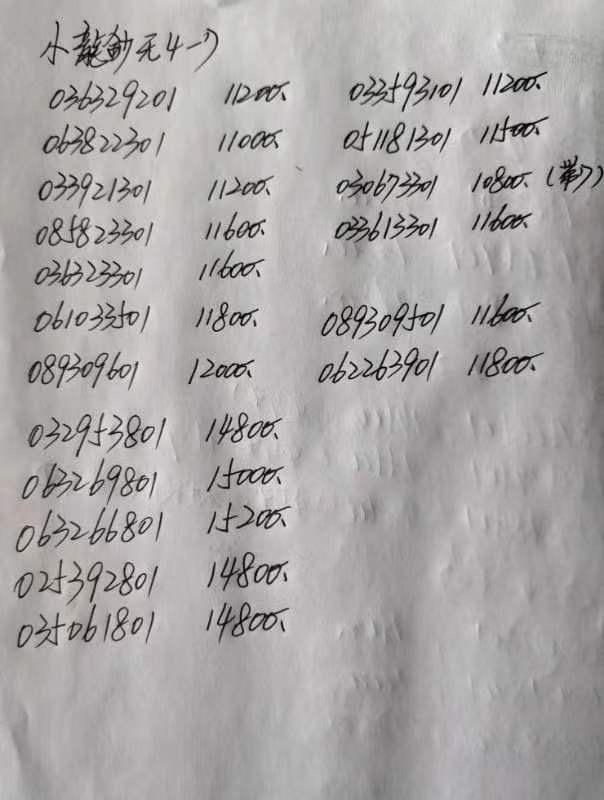 小龍鈔无4一刀
036329201 11200 033593101 11200
063822301 11000 051181301 11500
033921301 11200 030673301 10800 (带7)
085823301 11600 033613301 11600
036323301 11600
061033501 11800 089309501 11600
089309601 12000 062263901 11800
032953801 14800
063269801 15000
063266801 15200
025392801 14800
035061801 14800